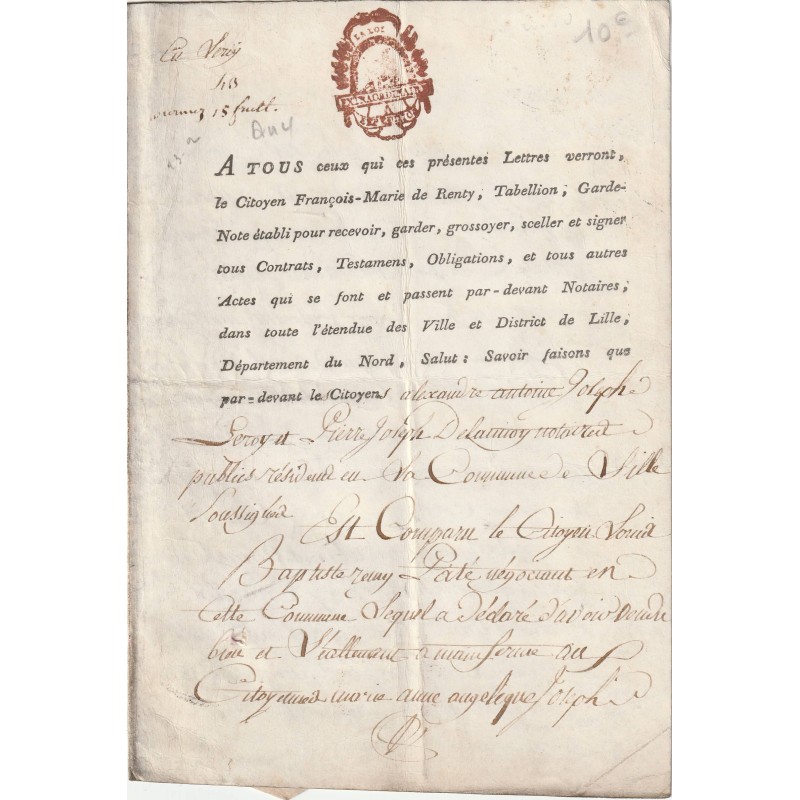 10 €
LA LOI
A TOUS ceux qui ces présentes Lettres verront,
le Citoyen François-Marie de Renty, Tabellion, Garde-
Note établi pour recevoir, garder, grossoyer, sceller et signer
tous Contrats, Testamens, Obligations, et tous autres
Actes qui se font et passent par-devant Notaires,
dans toute l'étendue des Ville et District de Lille,
Département du Nord, Salut: Savoir faisons que
par-devant les Citoyens alexandre antoine Joseph
Leroy et Pierre Joseph Delannoy notaires
publics résident en La Commune de Lille
soussignés
Est Comparu le Citoyen Louis
Baptiste remy Paté négociant en
cette Commune Lequel a déclaré d'avoir vendu
bien et au
Citoyennes marie anne angelique Joseph